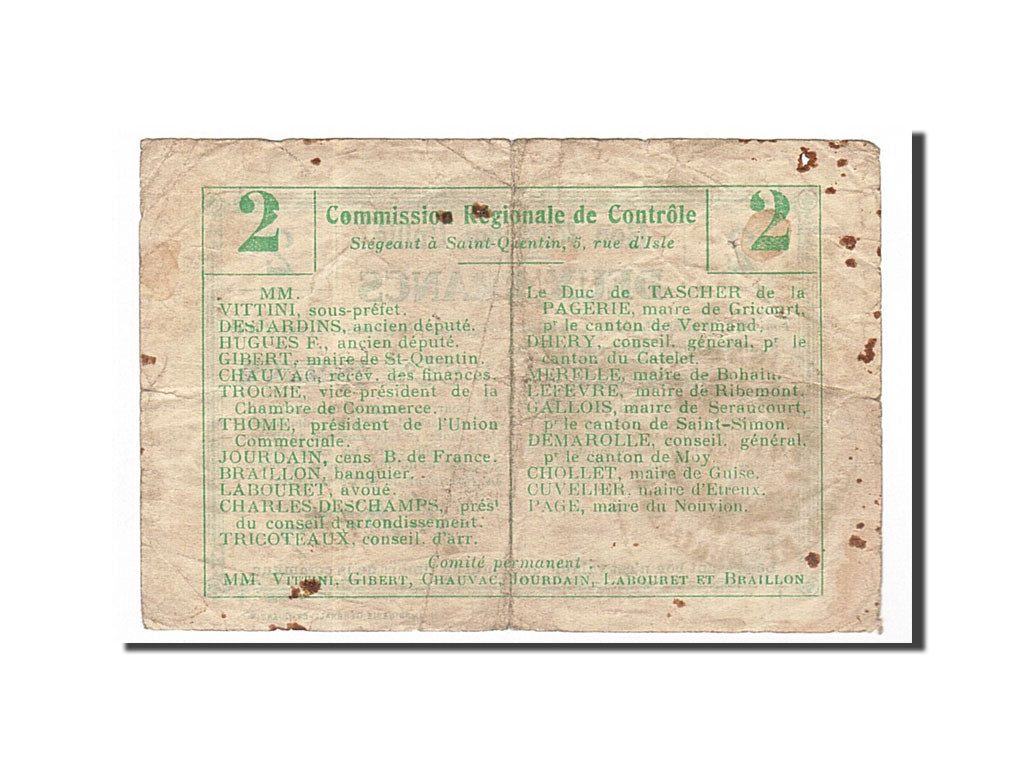 2
Commission Régionale de Contrôle
Siégeant à Saint-Quentin, 5, rue d'Isle
2
MM.
VITTINI, sous-préfet.
DESJARDINS, ancien député.
HUGUES F., ancien député.
GIBERT, maire de St-Quentin.
CHAUVAC, recev. des finances.
TROCME, vice-président de la
Chambre de Commerce.
THOME, président de l'Union
Commerciale.
JOURDAIN, cens B. de France.
BRAILLON, banquier.
LABOURET, avoué.
CHARLES-DESCHAMPS, prést
du conseil d'arrondissement.
TRICOTEAUX, conseil. d'arr.
Le Duc de TASCHER de la
PAGERIE, maire de Gricourt,
pr le canton de Vermand.
DHERY, conseil. général, pr le
canton du Catelet.
MERELLE, maire de Bohain.
LEFEVRE, maire de Ribemont.
GALLOIS, maire de Seraucourt,
pr le canton de Saint-Simon.
DEMAROLLE, conseil. général,
pr le canton de Moy.
CHOLLET, maire de Guise.
CUVELIER, maire d'Etreux.
PAGE, maire du Nouvion.
Comité permanent :
MM. VITTINI, GIBERT, CHAUVAC, JOURDAIN, LABOURET ET BRAILLON